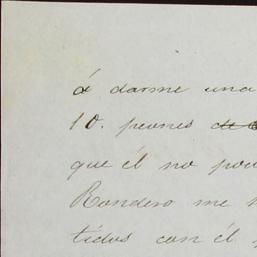 á darme una
10. peones
que él no pod
Rondero me
tidos con él